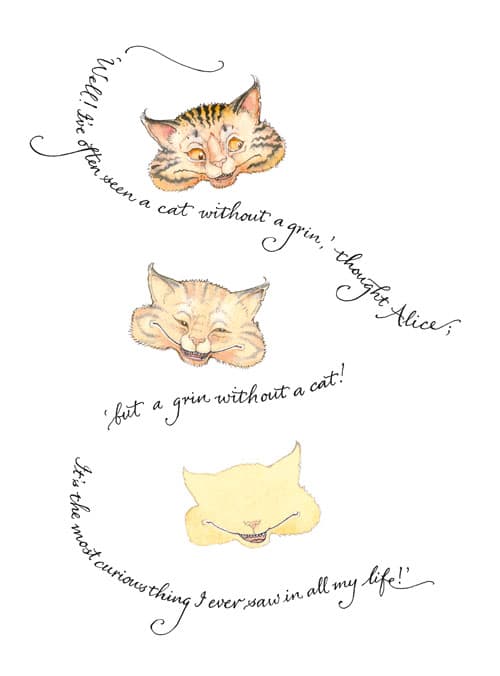 'Well! I've often seen a cat without a grin,' thought Alice;
'but a grin without a cat!
It's the most curious thing I ever saw in all my life!'